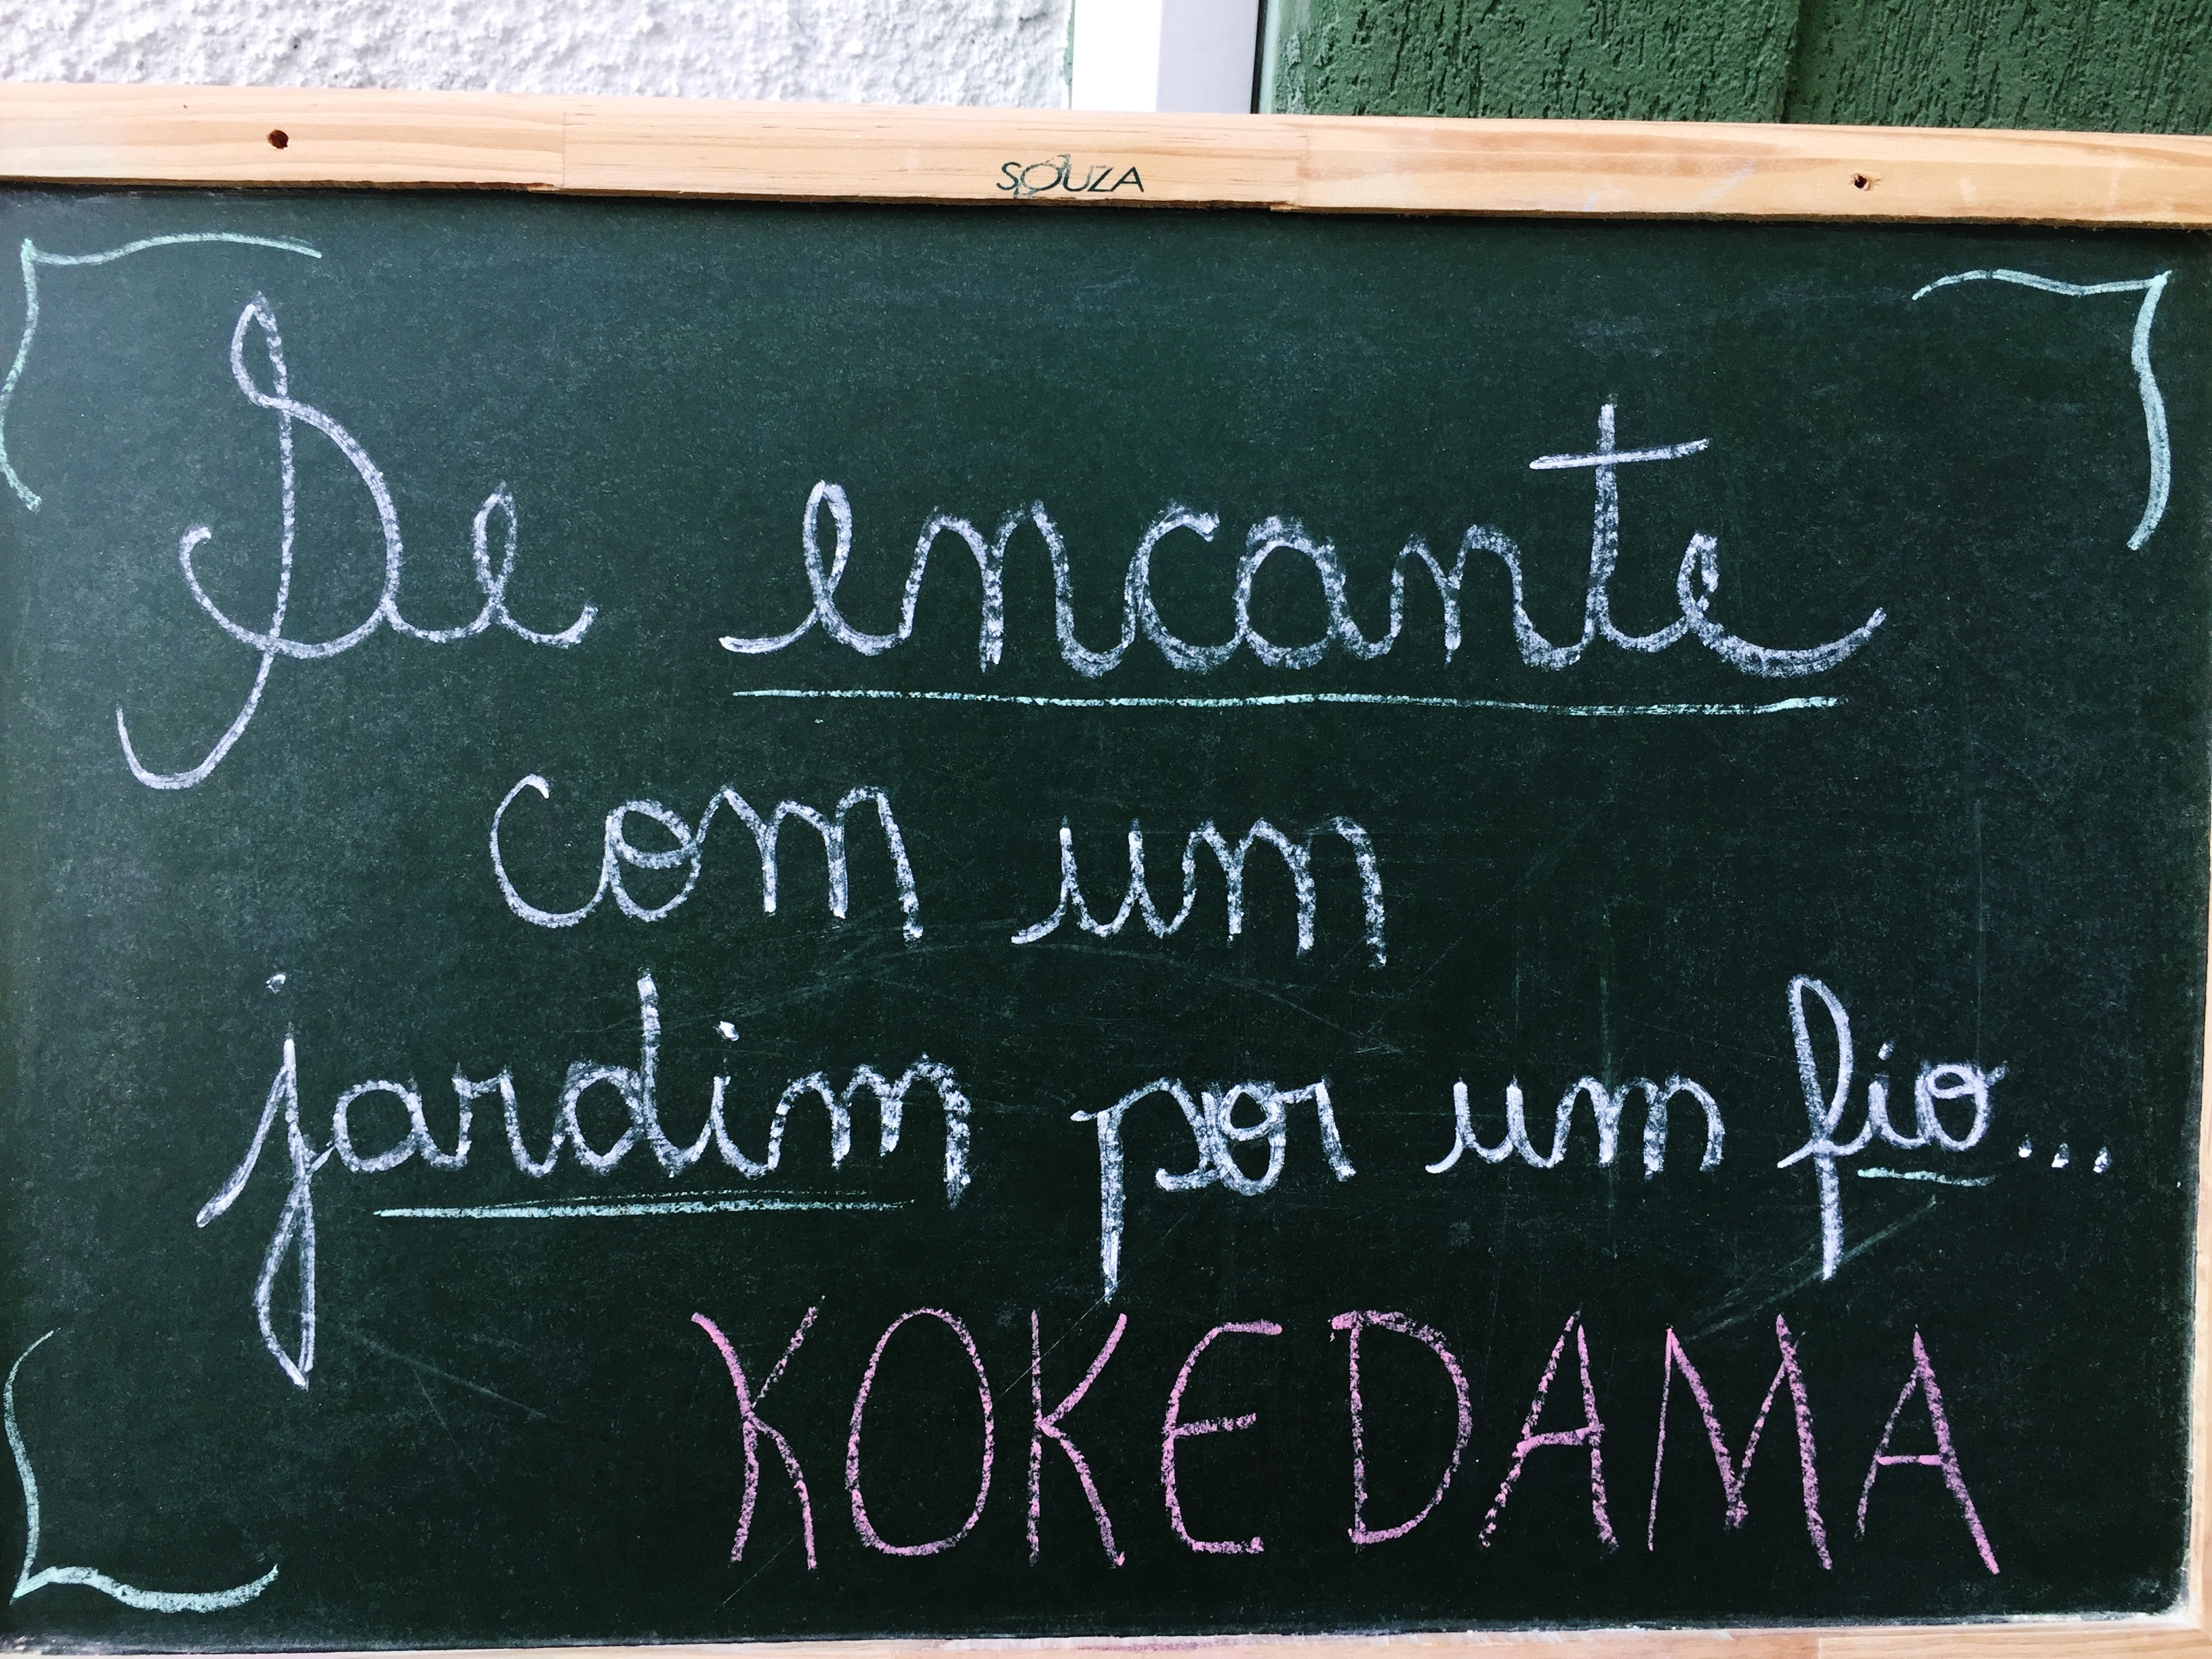 SOUZA
Se encante
com um
jardim por um fio...
KOKEDAMA